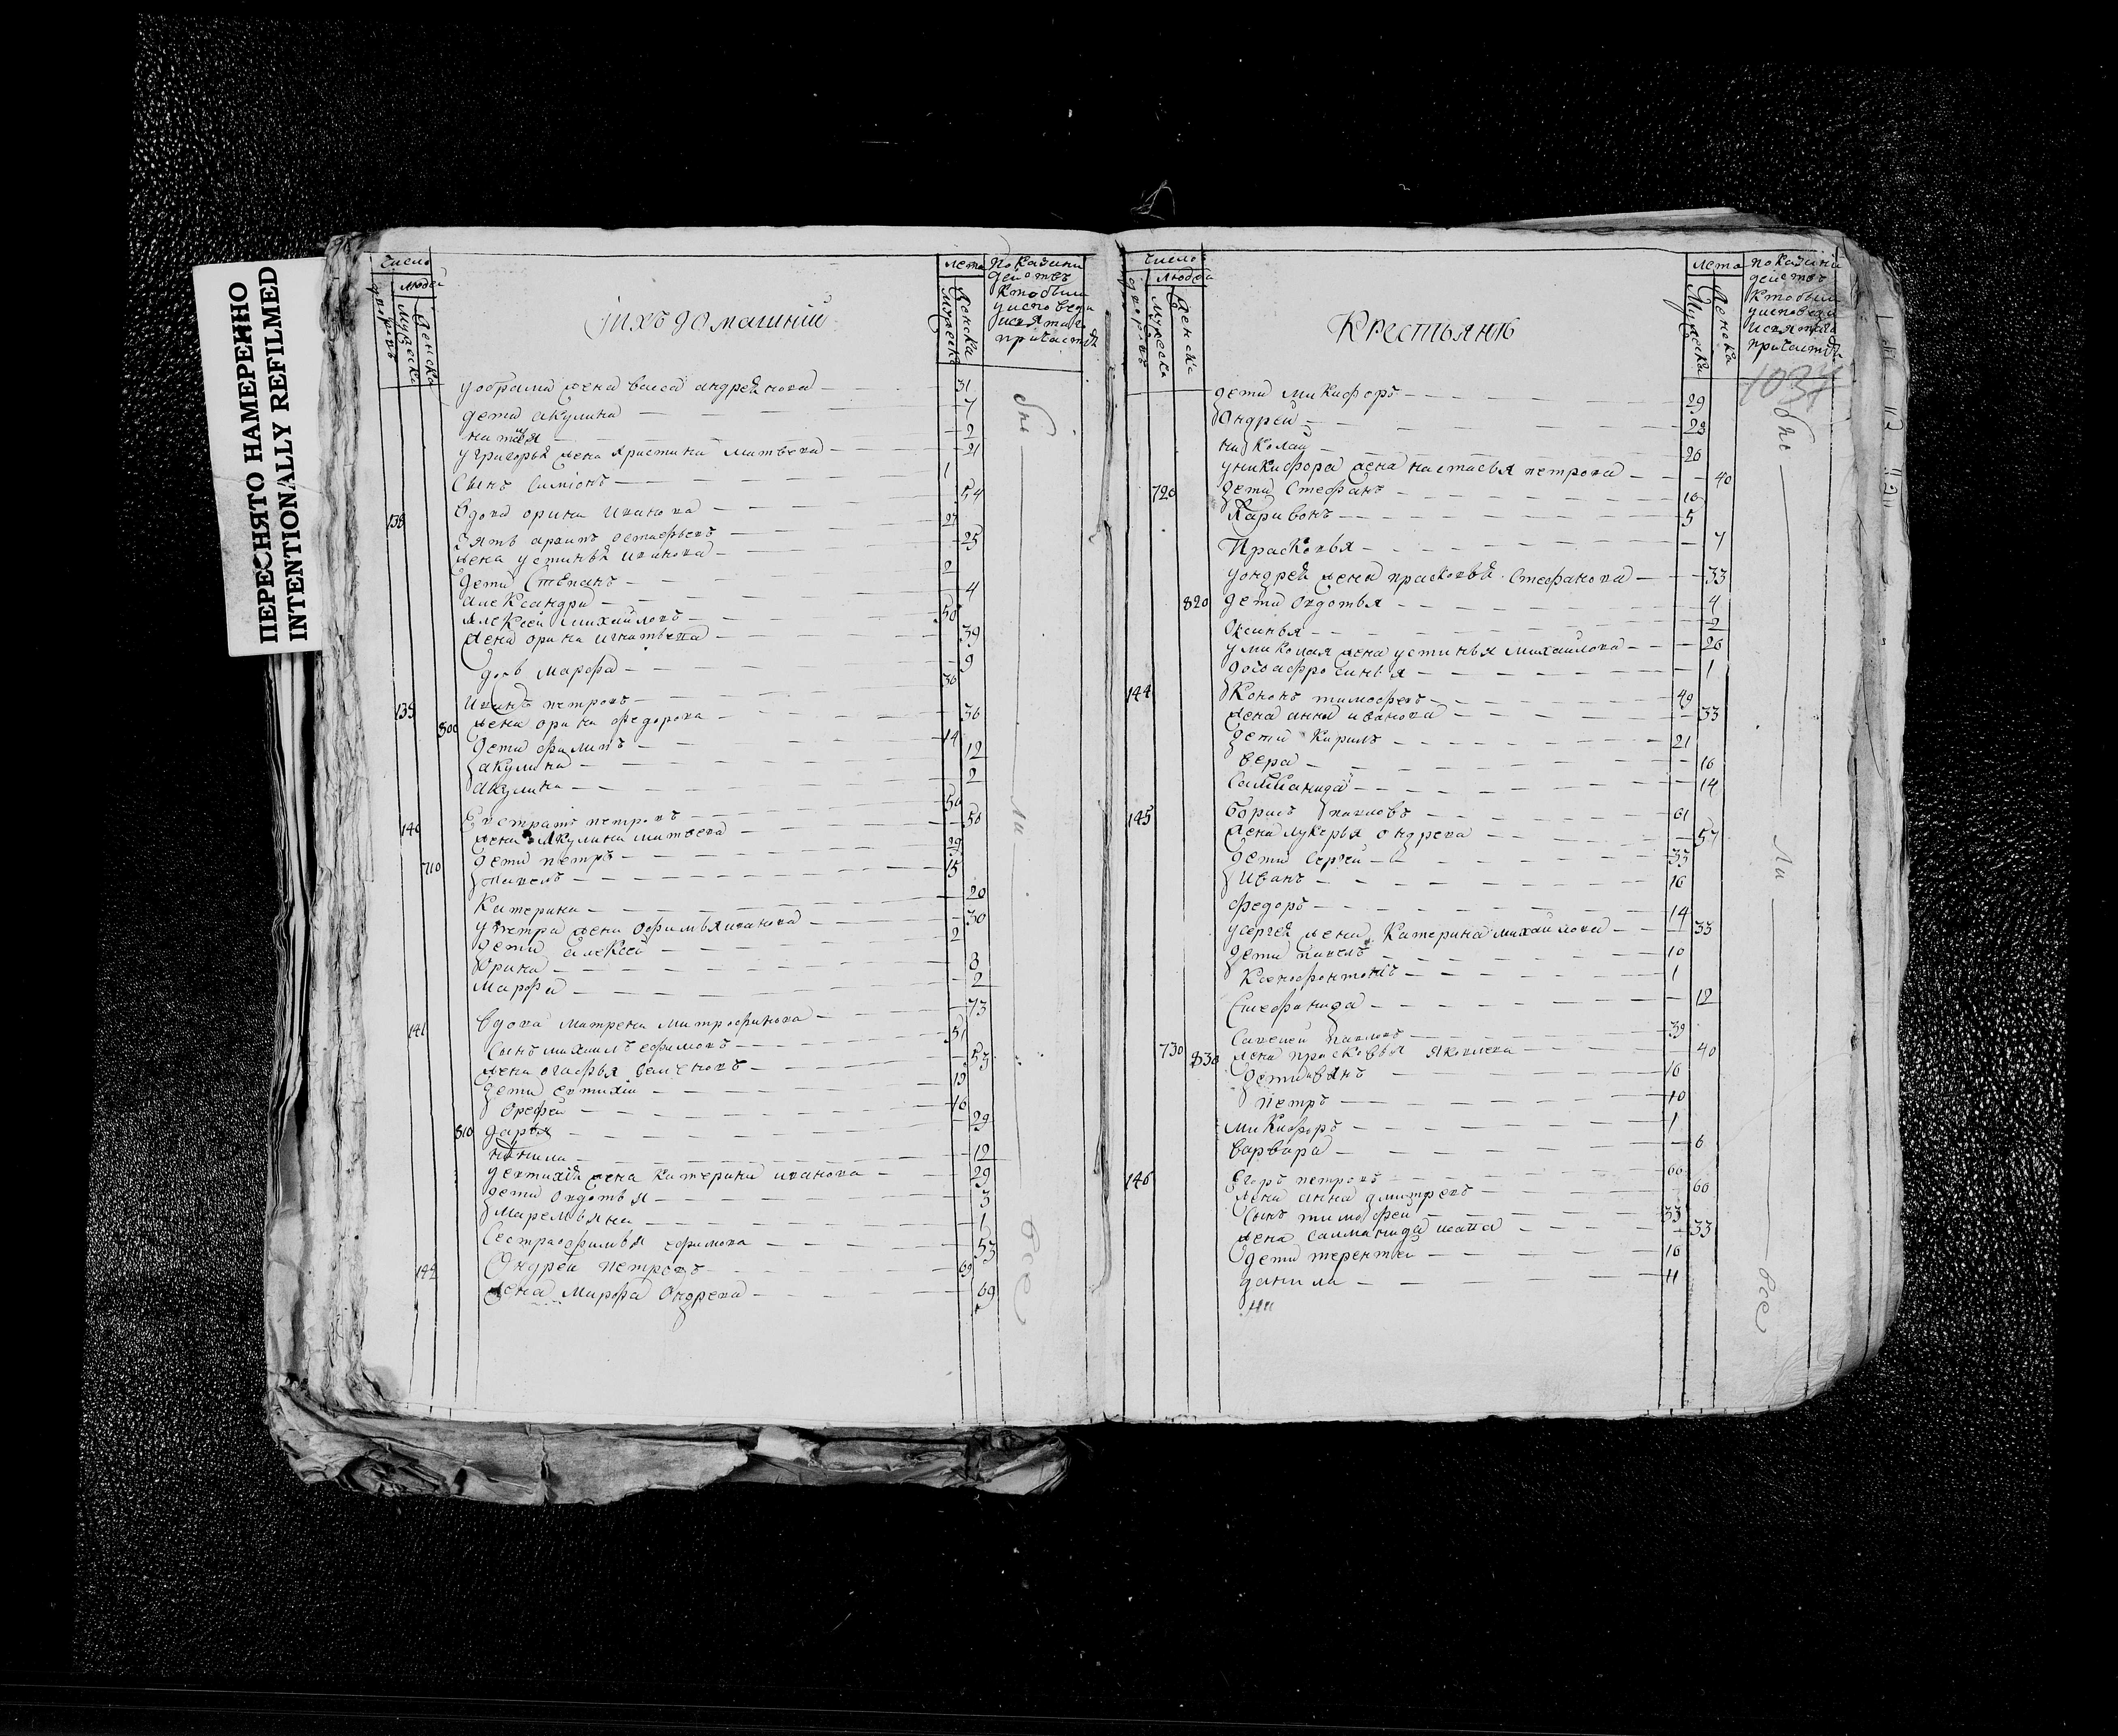 ПЕРЕСНЯТО НАМЕРЕННО
INTENTIONALLY REFILMED
число
людей
дворовъ
мужеска
женска
ихъ домашнии
лета
мужеска
женска
показани
действъ
кто были
у исповеди
и святаго
причастия
жена васса андреянова 31
дети акулина 7
наталя 2
у григорья жена христина матвева 21
сынъ симионъ 1
138 вдова орина иванова 54
зять архипъ остафьевъ 27
жена устинья иванова 25
дети степанъ 2
александра 4
алексей михайловъ 50
жена орина игнатьева 39
дочь марфа 9
139 иванъ петровъ 36
800 жена орина федорова 36
дети филипъ 14
акулина 12
акулина 2
140 евстратъ петровъ 50
жена акулина матвева 50
710 дети петръ 29
павелъ 15
катерина 20
у петра жена офимья иванова 30
дети алексей 2
орина 8
марфа 2
141 вдова матрена митрофанова 73
сынъ михаилъ ефимовъ 51
жена огафья семеновъ 53
дети евтихии 19
орефеи 16
810 дарья 29
ненила 12
у евтихий жена катерина иванова 29
дети овдотья 3
маремьяна 1
сестра офимья ефимова 53
142 ондреи петровъ 69
жена марфа ондрева 69
были
все
число
людей
дворовъ
мужеска
женска
крестьяне
лета
мужеска
женска
показании
действъ
кто были
у исповеди
и святаго
причастия
1037
дети микифоръ 29
ондрей 28
николай 26
у никифора жена настасья петрова 40
720 дети стефанъ 10
харивонъ 5
прасковья 7
у ондрей жена прасковья стефанова 33
820 дети овдотья 4
оксинья 2
у миколая жена устинья михаилова 26
дочь афросинья 1
144 кононъ тимофевъ 49
жена анна иванова 33
дети кирилъ 21
вера 16
саламанида 14
145 борисъ павловъ 61
жена лукерья ондрева 57
дети сергей 33
иванъ 16
федоръ 14
у сергей жена катерина михаилова 33
дети павелъ 10
ксенофонтонъ 1
стефанида 12
савелей павловъ 39
730 830 жена прасковья яковлева 40
дети иванъ 16
петръ 10
микифоръ 1
варвара 6
146 егоръ петровъ 60
жена анна дмитревъ 60
сынъ тимофеи 33
жена саламанида 33
дети терентеи 16
данила 11
были
все